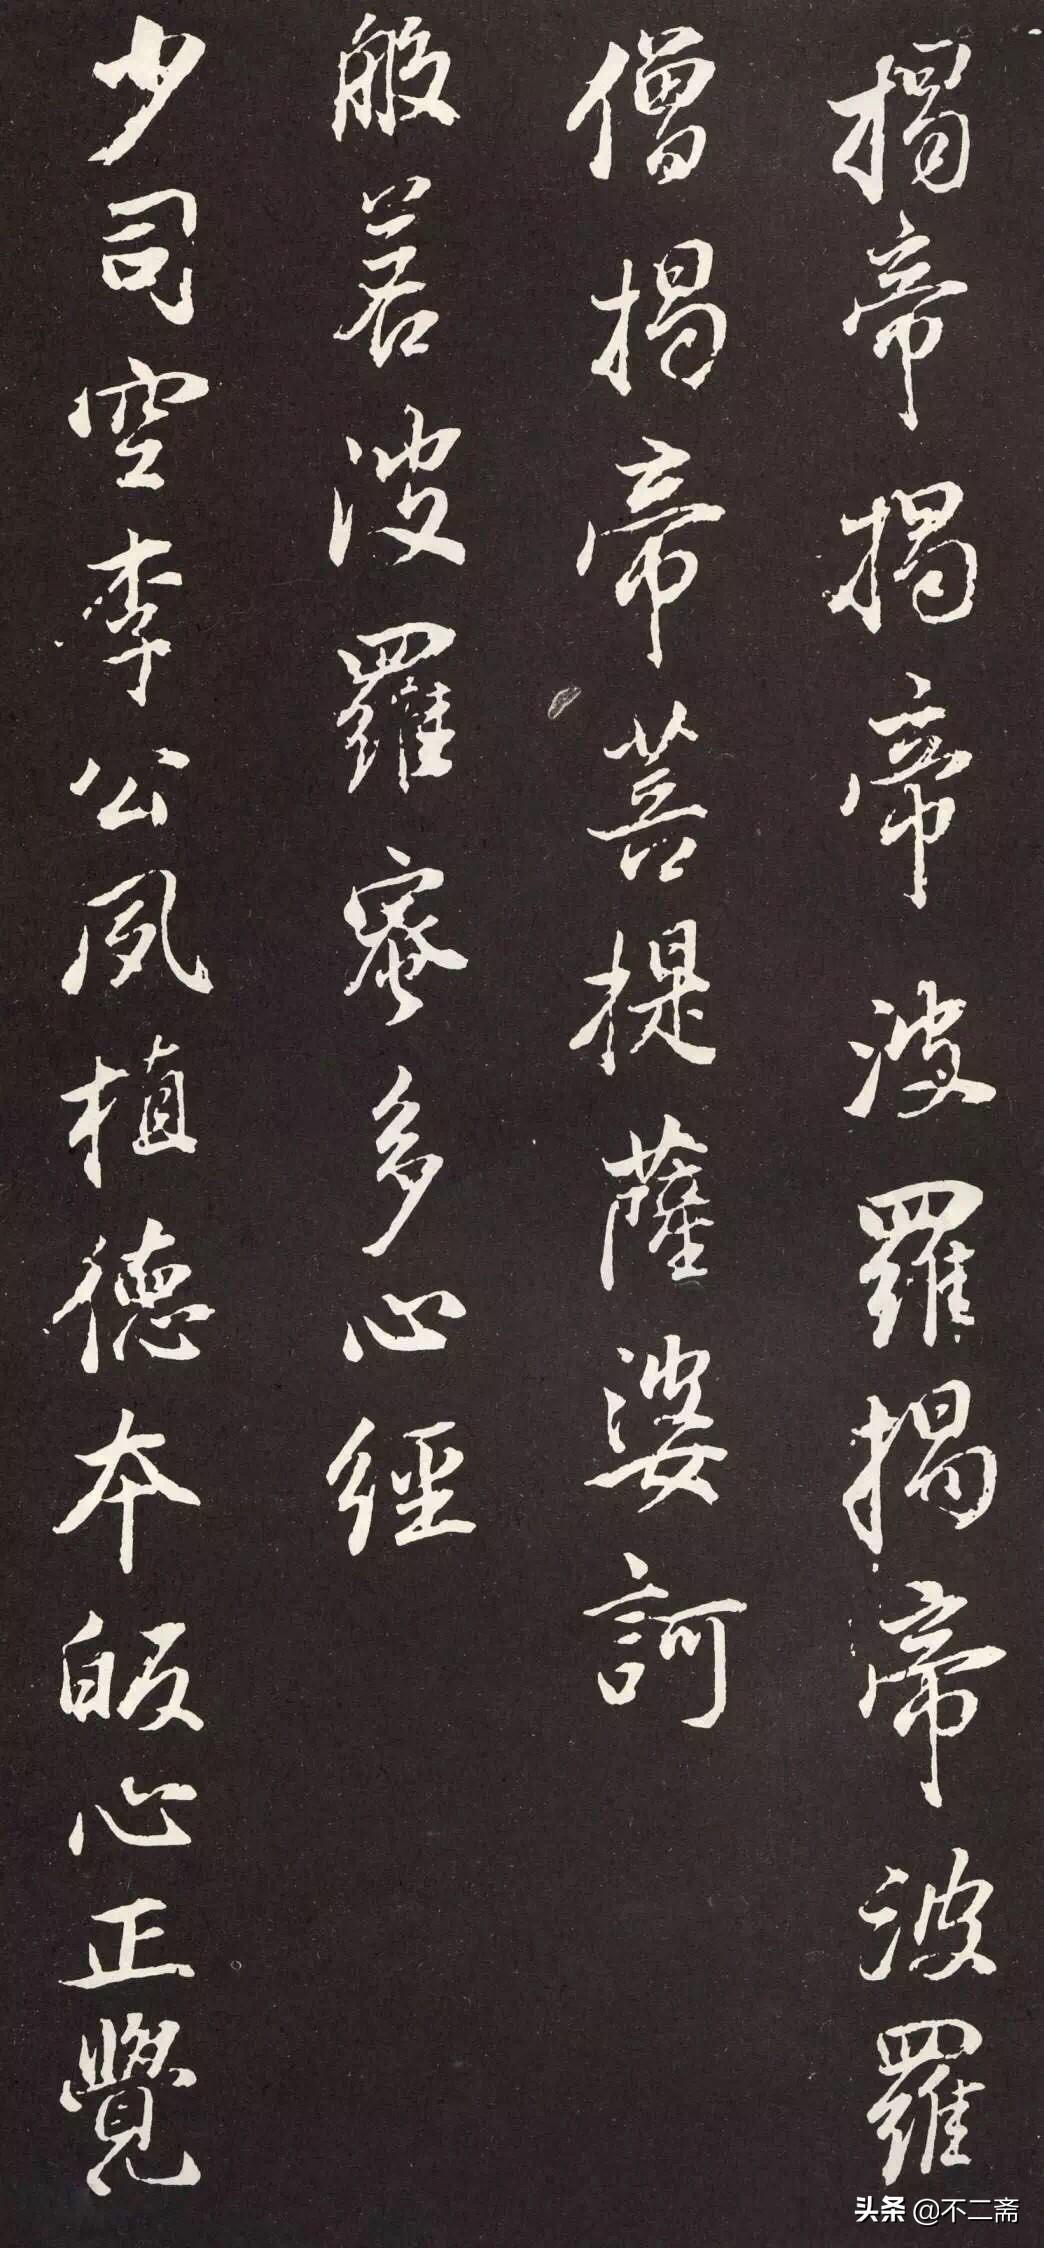 揭帝揭帝波羅揭帝波羅
僧揭帝菩提薩婆訶
般若波羅蜜多心經
少司空李公夙植德本皈心正覺
头条 @不二斋